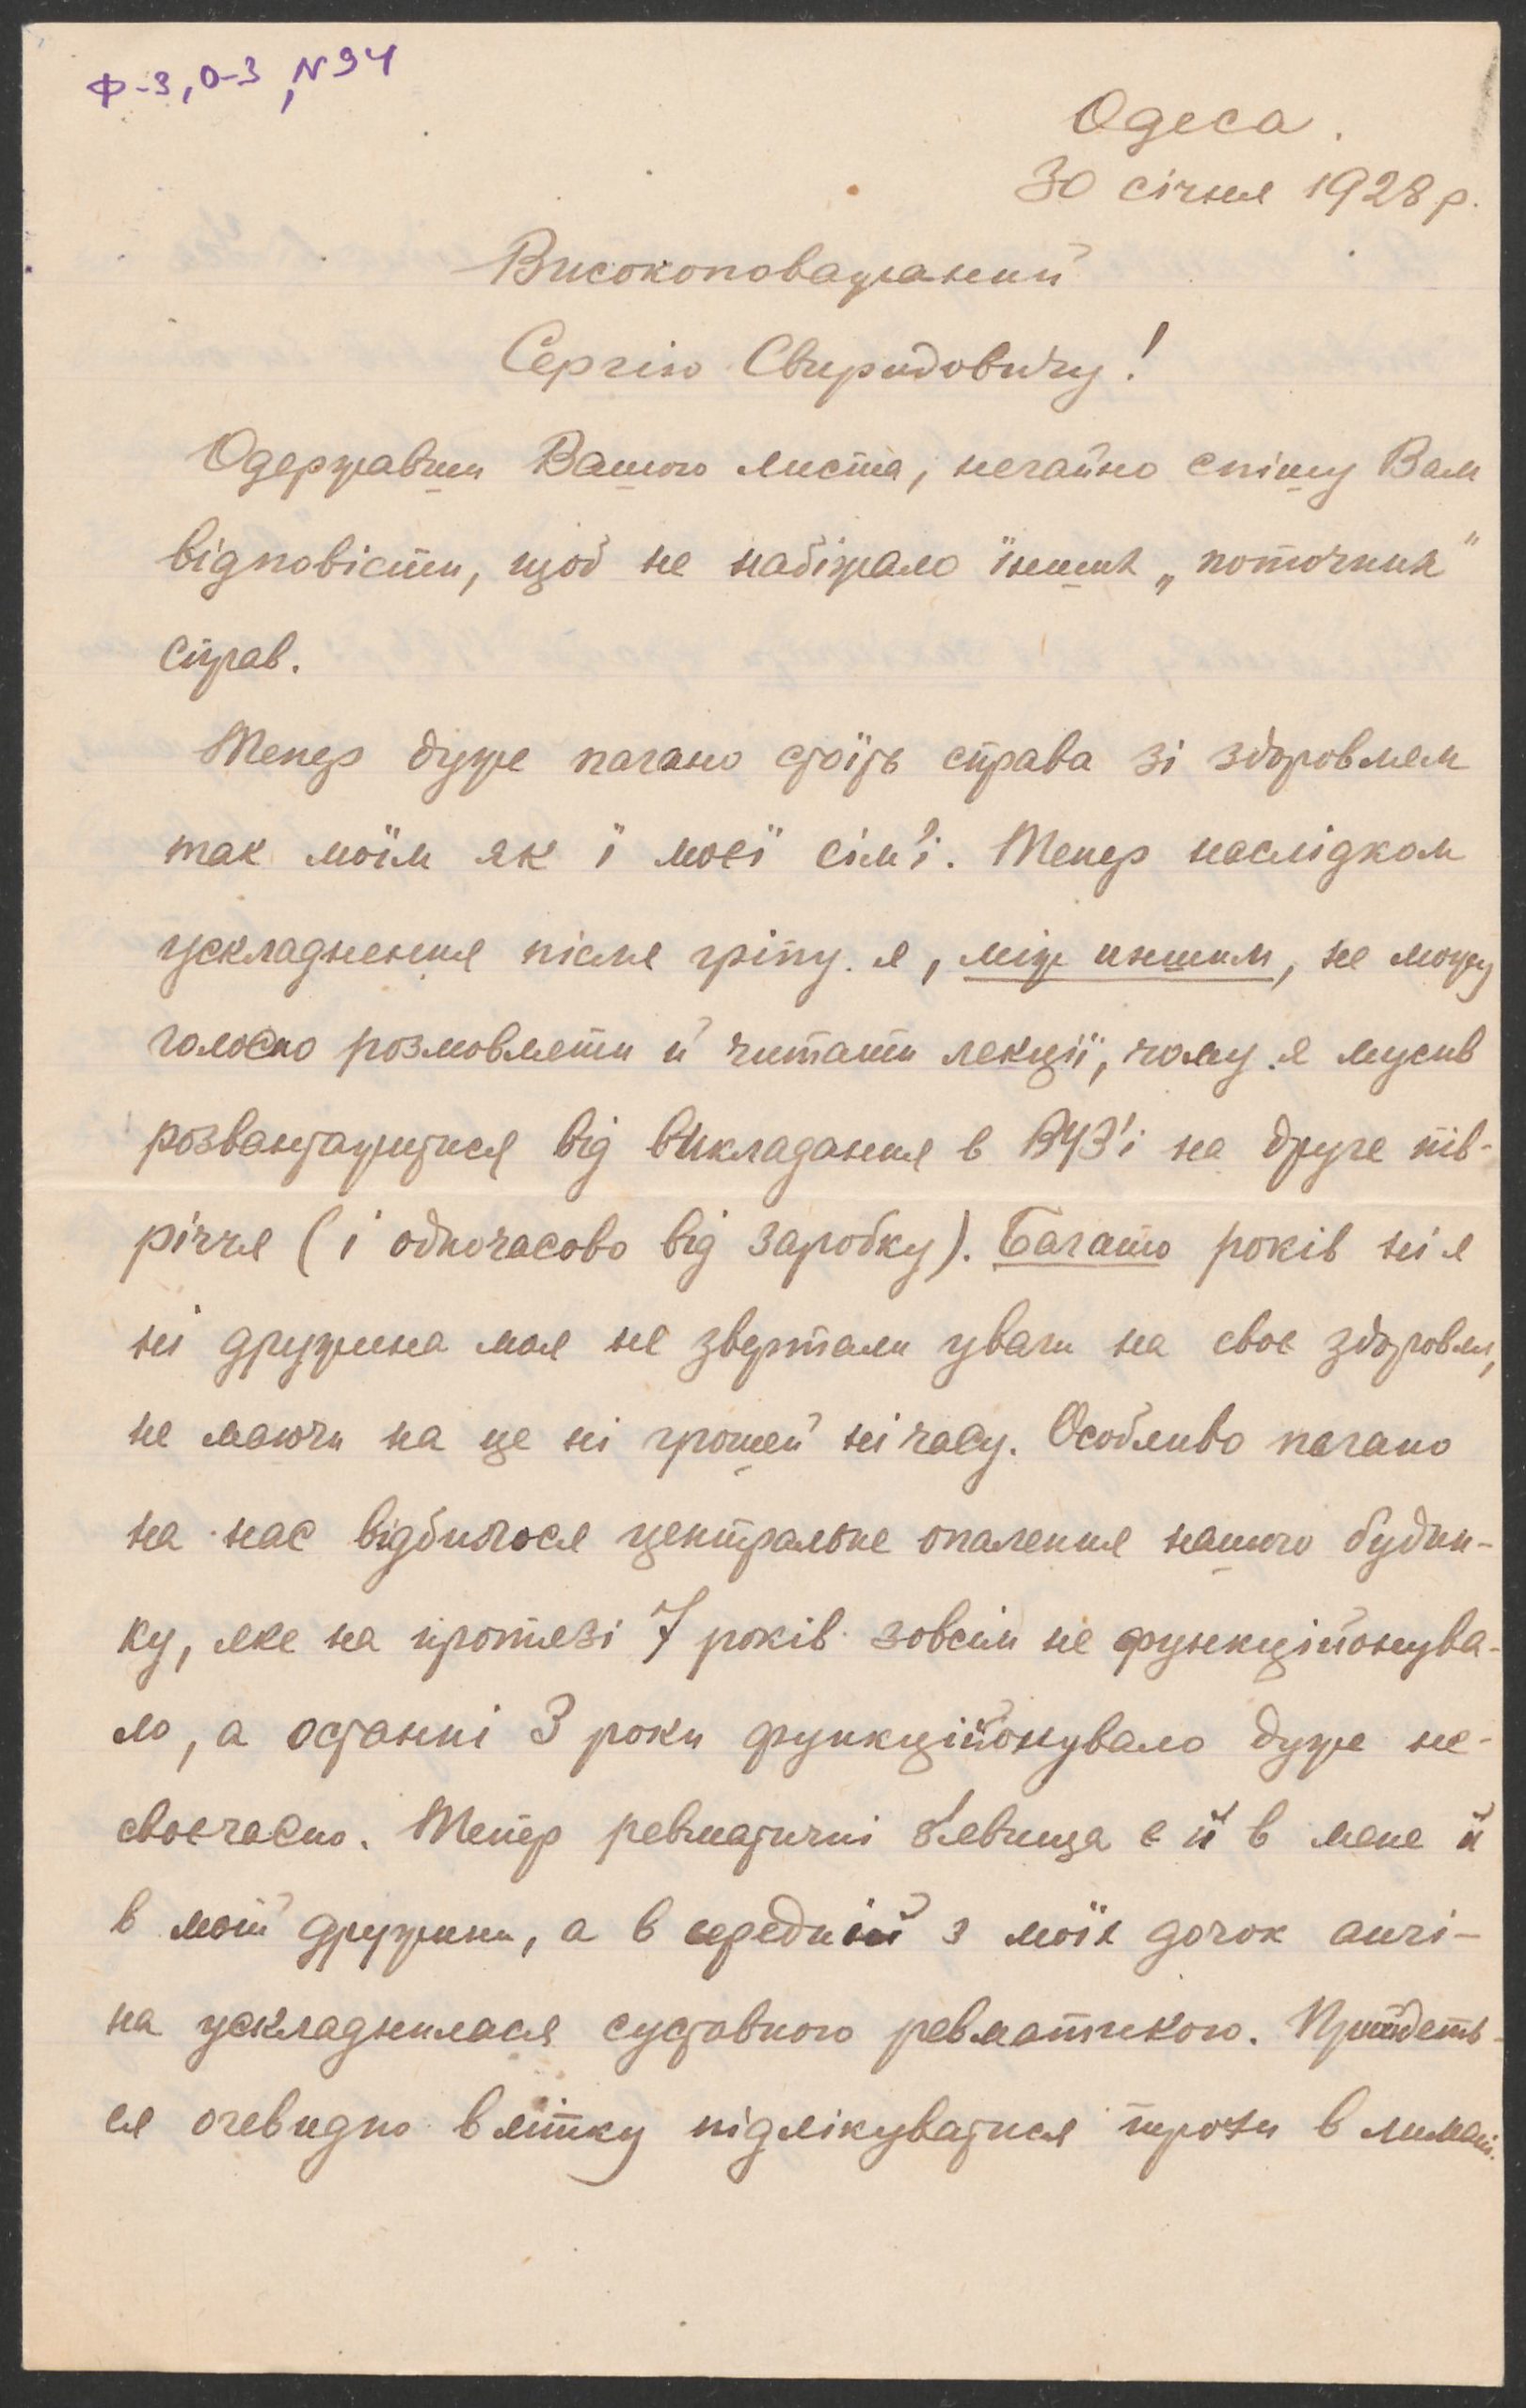 Ф-3, О-3, N 94
Одеса.
30 січня 1928 р.
Високоповажаний
Сергію Свиридовичу!
Одержавши Вашого листа, негайно спішу Вам
відповісти, щоб не набіжало їнших „поточних"
справ.
Тепер дуже погано стоїть справа зі здоровлям
так моїм як ї моєї сім'ї. Тепер наслідком
ускладнення після гріпу я, між иншим, не можу
голосно розмовляти й читати лекції, чому я мусив
розвантажитися від викладання в ВУЗ'і на друге пів-
річчя (і одночасово від заробку). Багато років ні я
ні дружина моя не звертали уваги на своє здоровля,
не маючи на це ні грошей ні часу. Особливо погано
на нас відбилося центральне опалення нашого будин-
ку, яке на протязі 7 років зовсім не функційонува-
ло, а останні 3 роки функційонувало дуже не-
своєчасно. Тепер ревматичні явища є й в мене й
в моїй дружини, а в середній з моїх дочок ангі-
на ускладнилася суставною ревматикою. Прийдеть-
ся очевидно влітку підлікуватися трохи в лимані.